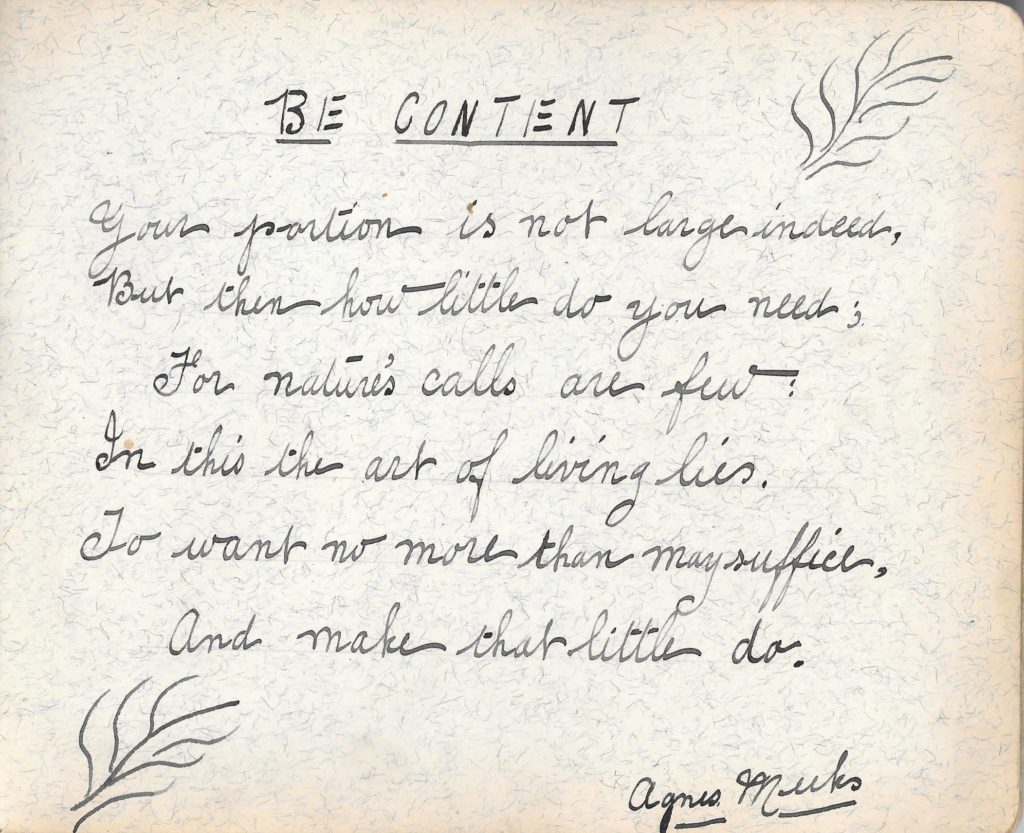 BE CONTENT
Your portion is not large indeed,
But then how little do you need;
For nature's calls are few:
In this the art of living lies.
To want no more than may suffice,
And make that little do.
Agnes Meeks